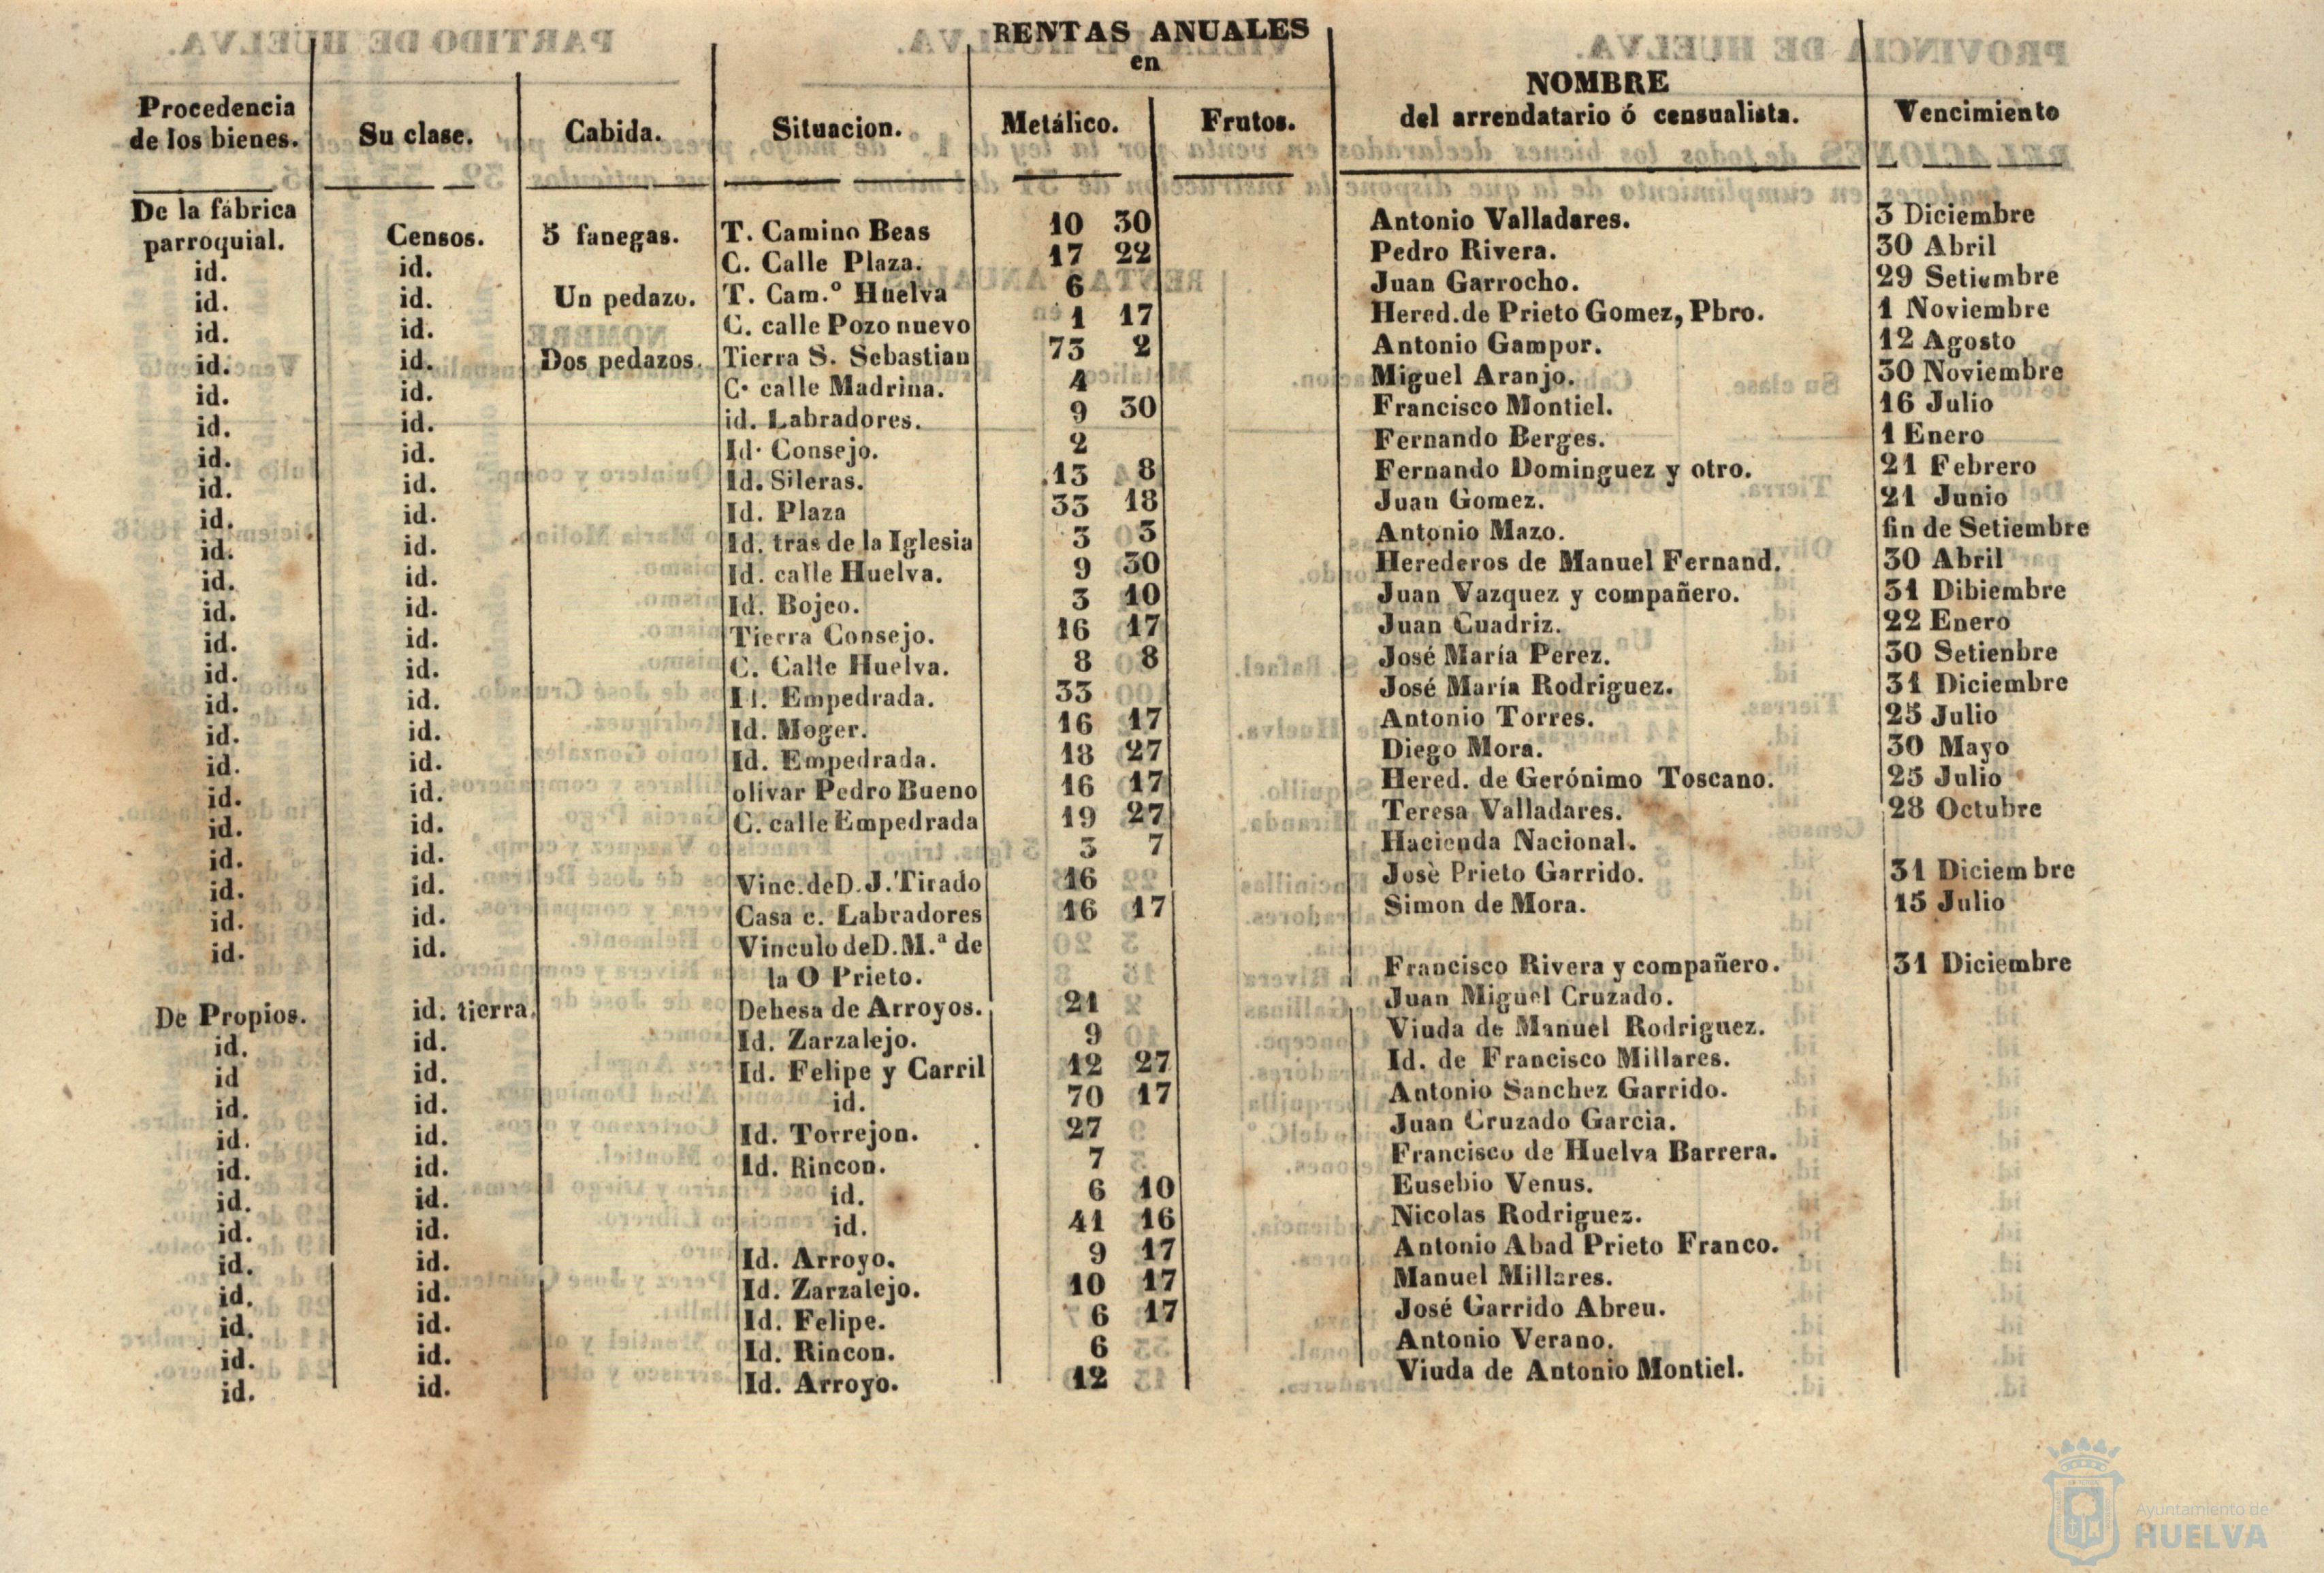 RENTAS ANUALES
en
Procedencia de los bienes. Su clase. Cabida. Situacion. Metálico. Frutos. NOMBRE del arrendatario ó censualista. Vencimiento
De la fábrica parroquial. Censos. 5 fanegas. T. Camino Beas 10 30 Antonio Valladares. 3 Diciembre
id. id. C. Calle Plaza. 17 22 Pedro Rivera. 30 Abril
id. id. Un pedazo. T. Cam.º Huelva 6 Juan Garrocho. 29 Setiembre
id. id. C. calle Pozo nuevo 1 17 Hered. de Prieto Gomez, Pbro. 1 Noviembre
id. id. Dos pedazos. Tierra S. Sebastian 73 2 Antonio Gampor. 12 Agosto
id. id. C. calle Madrina. 4 Miguel Aranjo. 30 Noviembre
id. id. id. Labradores. 9 30 Francisco Montiel. 16 Julio
id. id. Id. Consejo. 2 Fernando Berges. 1 Enero
id. id. Id. Sileras. 13 8 Fernando Dominguez y otro. 21 Febrero
id. id. Id. Plaza 33 18 Juan Gomez. 21 Junio
id. id. Id. tras de la Iglesia 3 3 Antonio Mazo. fin de Setiembre
id. id. Id. calle Huelva. 9 30 Herederos de Manuel Fernand. 30 Abril
id. id. Id. Bojeo. 3 10 Juan Vazquez y compañero. 31 Dibiembre
id. id. Tierra Consejo. 16 17 Juan Cuadriz. 22 Enero
id. id. C. Calle Huelva. 8 8 José María Perez. 30 Setienbre
id. id. Id. Empedrada. 33 José María Rodriguez. 31 Diciembre
id. id. Id. Moger. 16 17 Antonio Torres. 25 Julio
id. id. Id. Empedrada. 18 27 Diego Mora. 30 Mayo
id. id. olivar Pedro Bueno 16 17 Hered. de Gerónimo Toscano. 25 Julio
id. id. C. calle Empedrada 19 27 Teresa Valladares. 28 Octubre
id. id. 3 7 Hacienda Nacional.
id. id. Vinc. de D. J. Tirado 16 Josè Prieto Garrido. 31 Diciembre
id. id. Casa c. Labradores 16 17 Simon de Mora. 15 Julio
id. id. Vinculo de D. M.ª de
la O Prieto. Francisco Rivera y compañero. 31 Diciembre
De Propios. id. tierra. Dehesa de Arroyos. 21 Juan Miguel Cruzado.
id. id. Id. Zarzalejo. 9 Viuda de Manuel Rodriguez.
id id. Id. Felipe y Carril 12 27 Id. de Francisco Millares.
id. id. id. 70 17 Antonio Sanchez Garrido.
id. id. Id. Torrejon. 27 Juan Cruzado Garcia.
id. id. Id. Rincon. 7 Francisco de Huelva Barrera.
id. id. id. 6 10 Eusebio Venus.
id. id. id. 41 16 Nicolas Rodriguez.
id. id. Id. Arroyo. 9 17 Antonio Abad Prieto Franco.
id. id. Id. Zarzalejo. 10 17 Manuel Millares.
id. id. Id. Felipe. 6 17 José Garrido Abreu.
id. id. Id. Rincon. 6 Antonio Verano.
id. id. Id. Arroyo. 12 Viuda de Antonio Montiel.
Ayuntamiento de
HUELVA